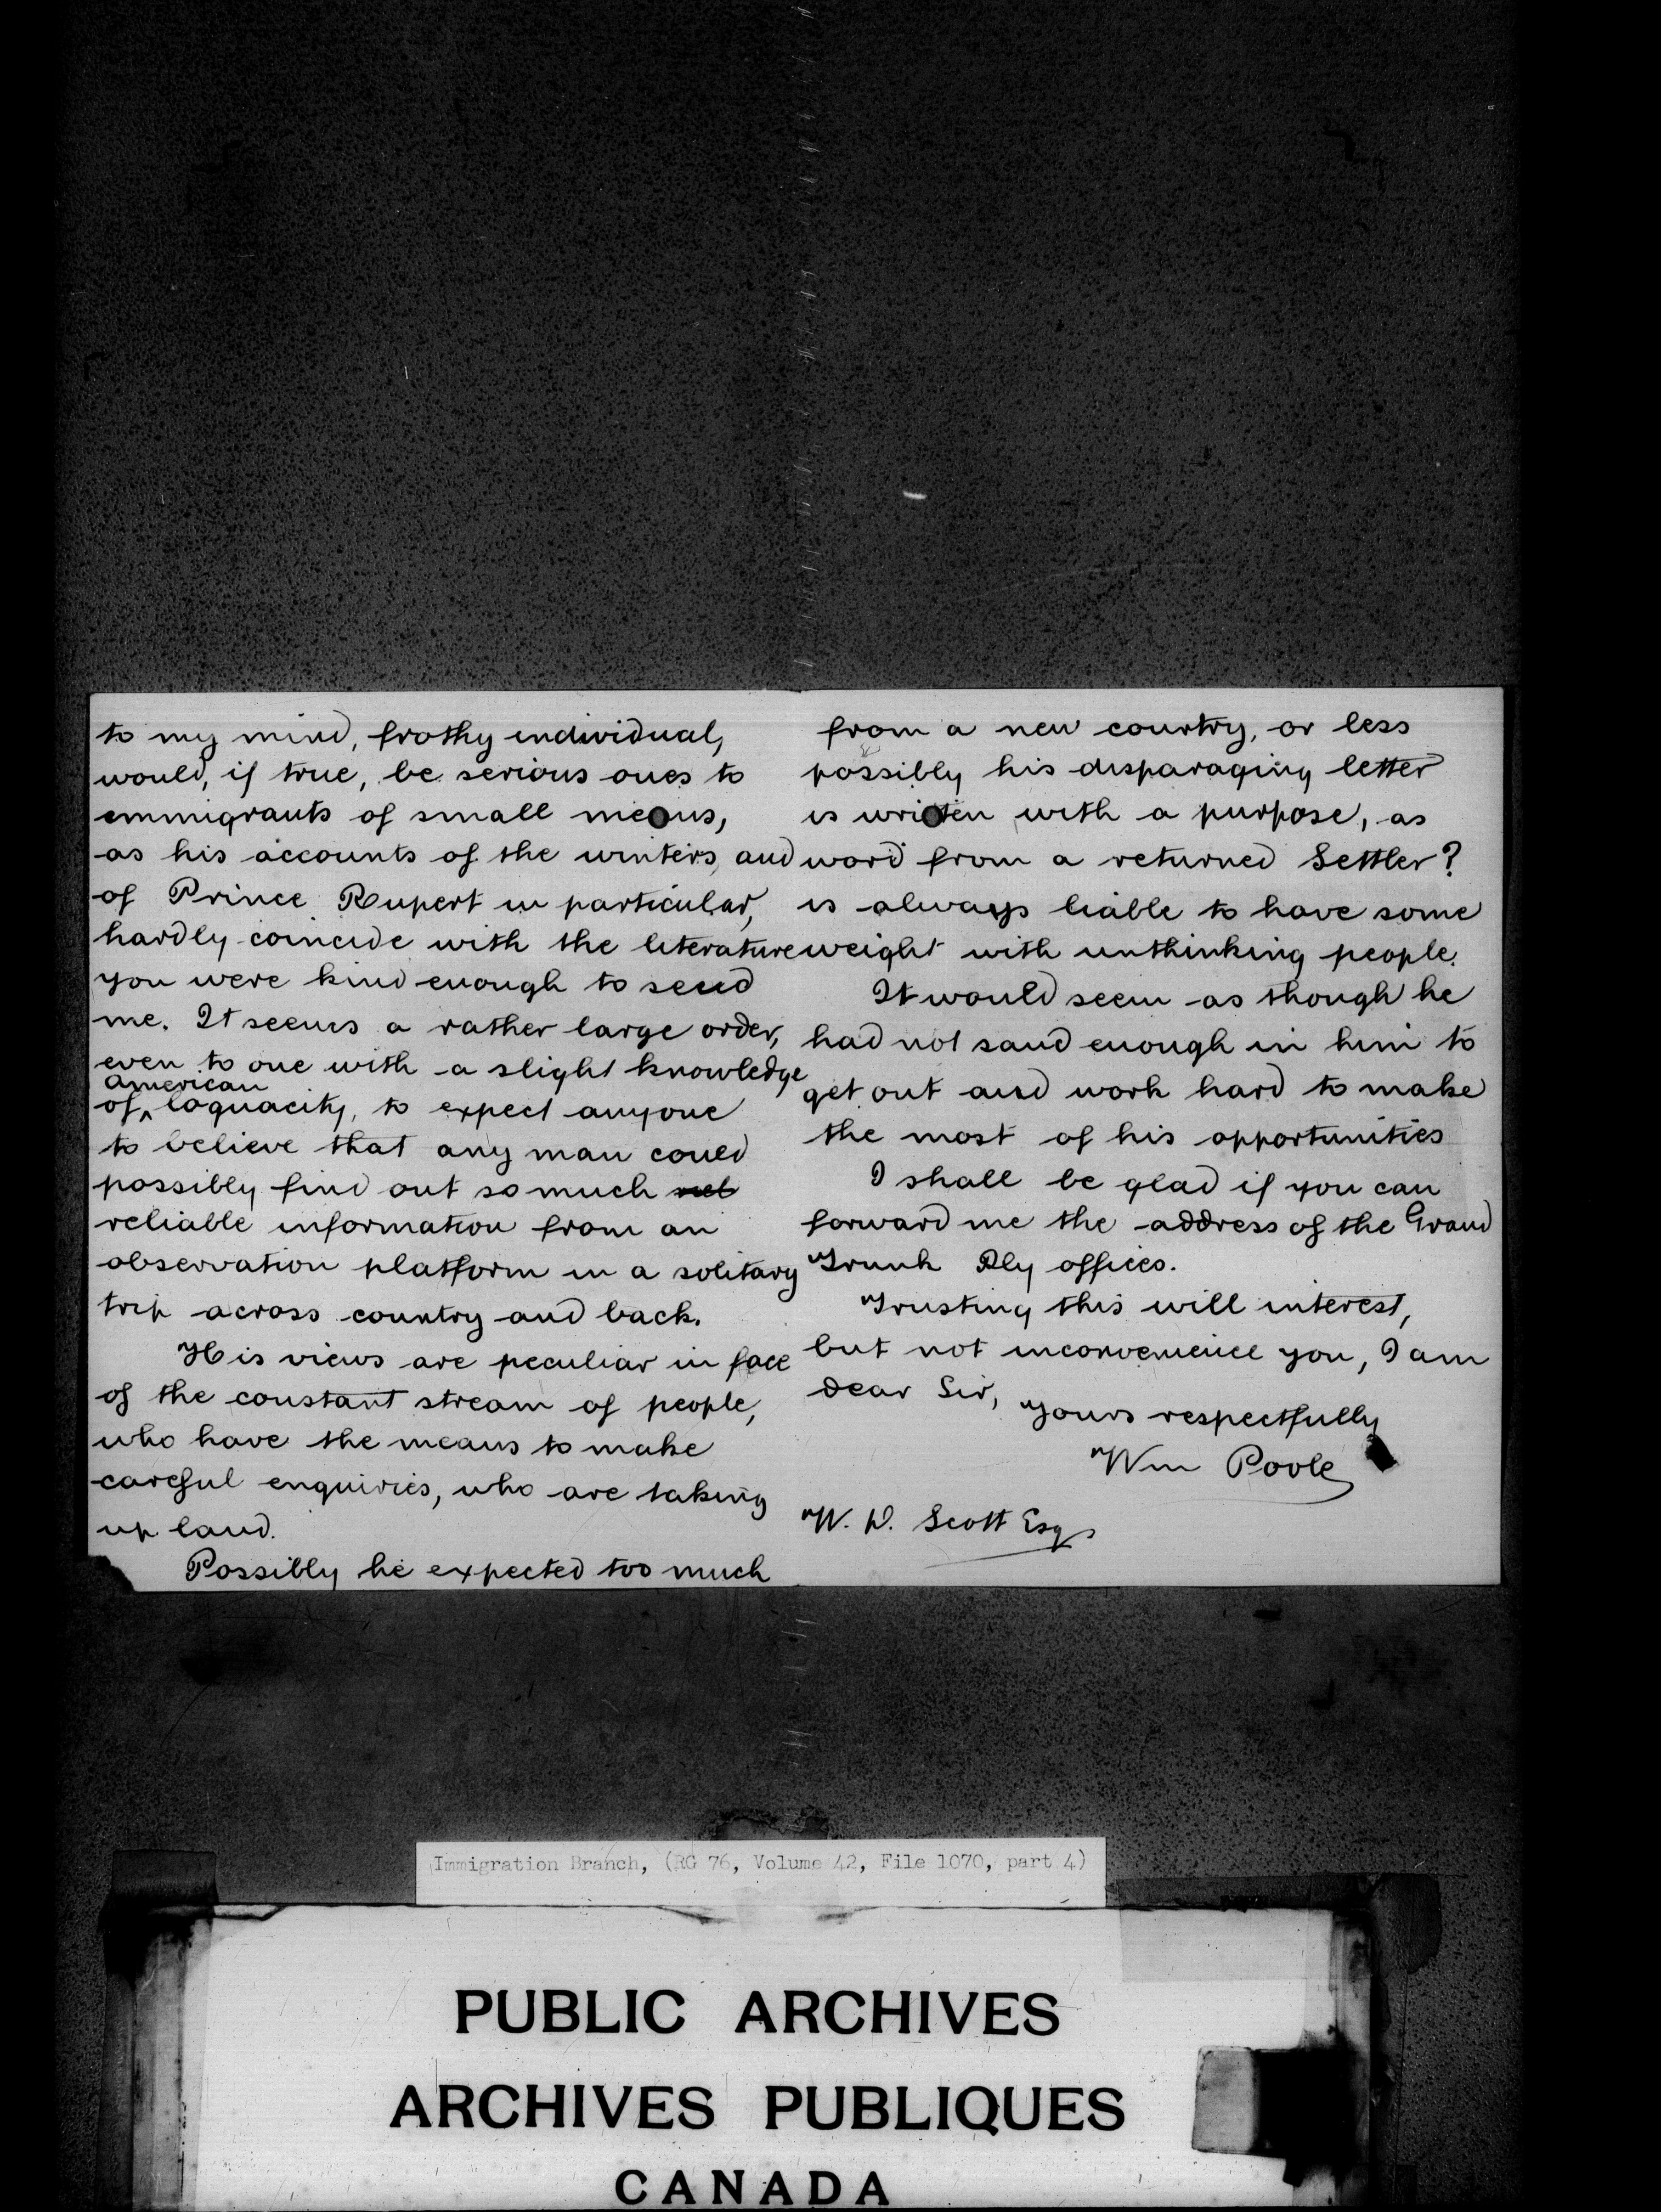 to my mind, frothy individual,
would, if true, be serious ones to
emmigrants of small means,
as his accounts of the winters, and
of Prince Rupert in particular,
hardly coincide with the literature
you were kind enough to send
me. It seems a rather large order,
even to one with a slight knowledge
American
of ^ loquacity, to expect anyone
to believe that any man could
possibly find out so much
reliable information from an
observation platform in a solitary
trip across country and back.
His views are peculiar in face
of the constant stream of people,
who have the means to make
careful enquiries, who are taking
up land.
Possibly he expected too much
from a new country, or less
possibly his disparaging letter
is written with a purpose, as
word from a returned Settler?
is always liable to have some
weight with unthinking people.
It would seem as though he
had not sand enough in him to
get out and work hard to make
the most of his opportunities
I shall be glad if you can
forward me the address of the Grand
Trunk Rly offices.
Trusting this will interest,
but not inconvenience you, I am
dear Sir,
Yours respectfully
Wm Poole
W. D. Scott Esq
Immigration Branch, (RG 76, Volume 42, File 1070, part 4)
PUBLIC ARCHIVES
ARCHIVES PUBLIQUES
CANADA